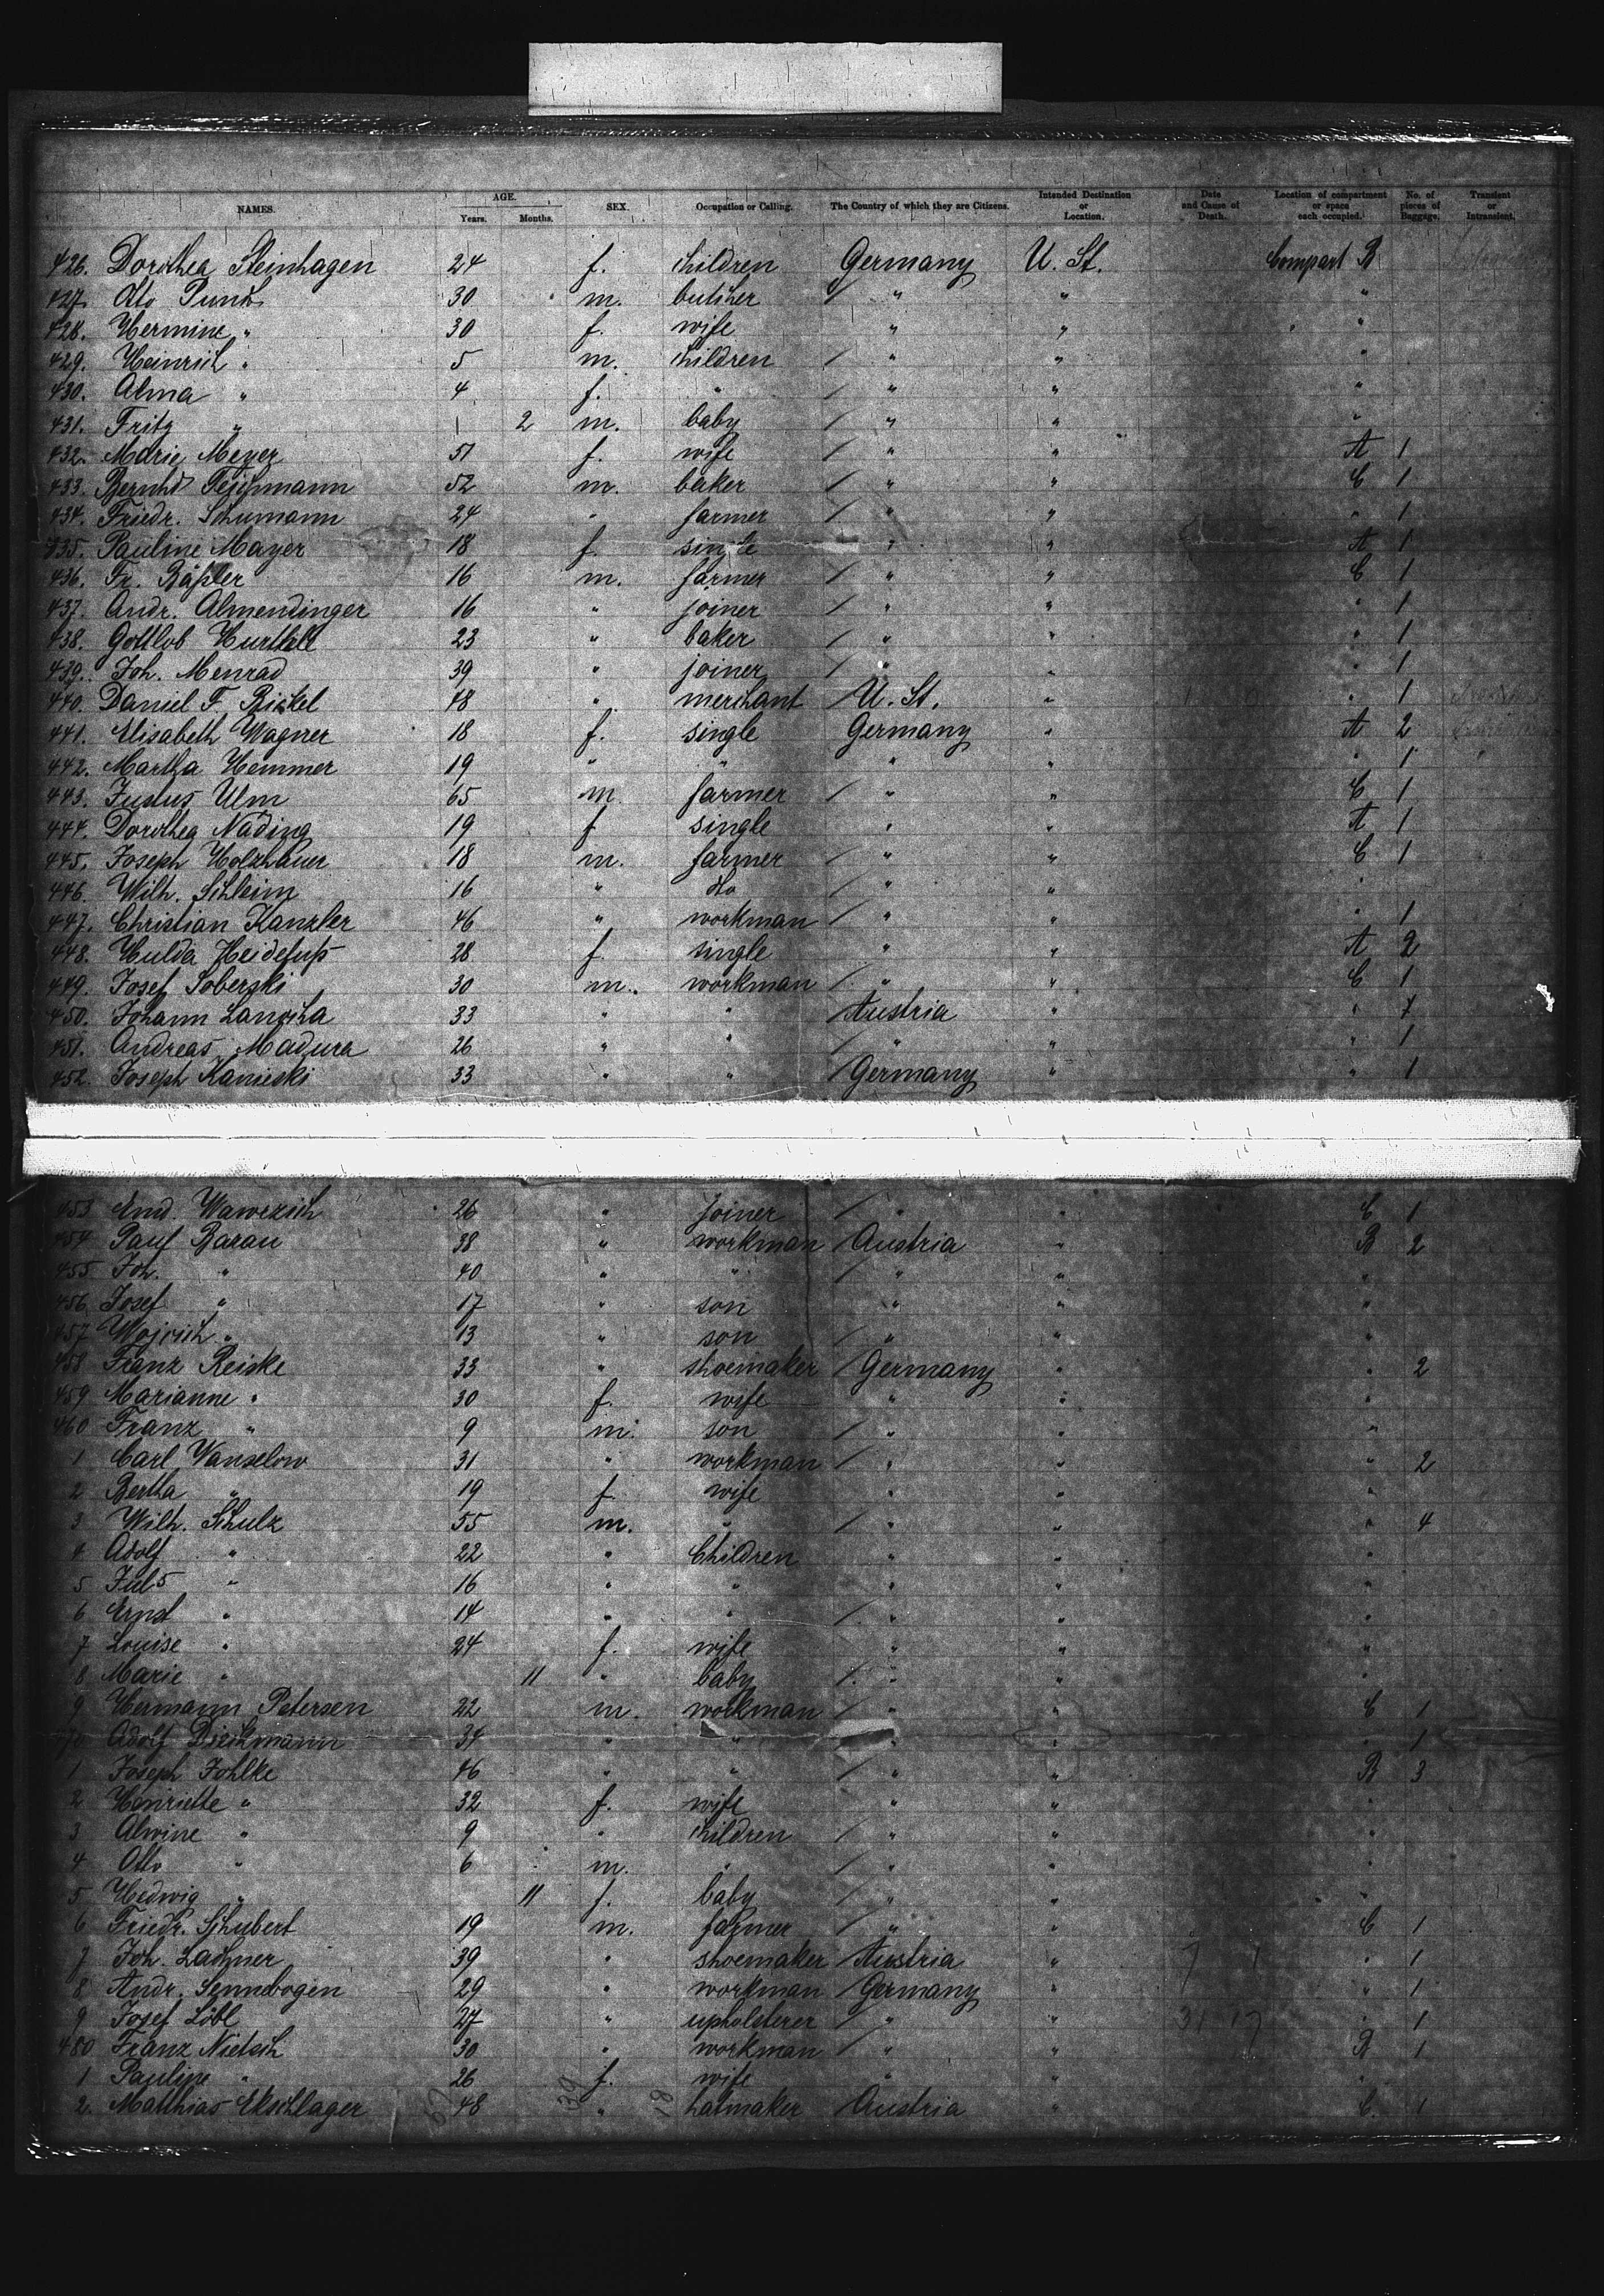 NAMES. AGE. Years. Months. SEX. Occupation or Calling. The Country of which they are Citizens. Intended Destination or Location. Date and Cause of Death. Location of compartment or space each occupied. No. of pieces of Baggage. Transient or Intransient.
426. Dorothea Steinhagen 24 f. children Germany U. St. Compart B
427. Otto 30 m. butcher " " "
428. Hermine " 30 f. wife " " "
429. Heinrich " 5 m. children " " "
430. Alma " 4 f. " " " "
431. Fritz " 2 m. baby " " "
432. Marie Meyer 51 f. wife " " A 1
433. Bernhd 52 m. baker " " C 1
434. Friedr. Schumann 24 " farmer " " " 1
435. Pauline Mayer 18 f. single " " A 1
436. Fr. 16 m. farmer " " C 1
437. Andr. Almendinger 16 " joiner " " " 1
438. Gottlob 23 " baker " " " 1
439. Joh. Menrad 39 " joiner " " " 1
440. Daniel F. Rickel 48 " merchant U. St. " " 1
441. Elisabeth Wagner 18 f. single Germany " A 2
442. Martha Hemmer 19 " " " " " 1
443. Justus Ulm 65 m. farmer " " C 1
444. Dorothea Näding 19 f single " " A 1
445. Joseph Holzhauer 18 m. farmer " " C 1
446. Wilh. Schleim 16 " dto " " "
447. Christian Kanzler 46 " workman " " " 1
448. Hulda Heidefuß 28 f. single " " A 2
449. Josef Soberski 30 m. workman " " C 1
450. Johann 33 " " Austria " "
451. Andreas Madura 26 " " " " " 1
452. Joseph Kanieski 33 " " Germany " " 1
453 26 " joiner " " C 1
454 Paul Baran 38 " workman Austria " B 2
455 Joh. " 40 " " " " "
456 Josef " 17 " son " " "
457 Wojcich " 13 " son " " "
458 Franz Reiske 33 " shoemaker Germany " " 2
459 Marianne " 30 f. wife " " "
460 Franz " 9 m. son " " "
1 Carl Wanselow 31 " workman " " " 2
2 Bertha " 19 f. wife " " "
3 Wilh. Schulz 55 m. " " " " 4
4 Adolf " 22 " Children " " "
5 Juls " 16 " " " " "
6 Ernst " 14 " " " " "
7 Louise " 24 f. wife " " "
8 Marie " 11 " baby " " "
9 Hermann Petersen 22 m. workman " " C 1
70 Adolf Dieckmann 34 " " " " " 1
1 Joseph Johlke 46 " " " " B 3
2 Henriette " 32 f. wife " " "
3 Alwine " 9 " children " " "
4 Otto " 6 m. " " " "
5 Hedwig " 11 f. baby " " "
6 Friedr. Schubert 19 m. farmer " " C 1
7 Joh. Lachner 39 " shoemaker Austria " " 1
8 Andr. Sennebogen 29 " workman Germany " " 1
9 Josef Löbl 27 " upholsterer " " " 1
480 Franz Nietsch 30 " workman " " B 1
1 Pauline " 26 f. wife " " "
2. Matthias Ekschlager 48 " hatmaker Austria " C. 1